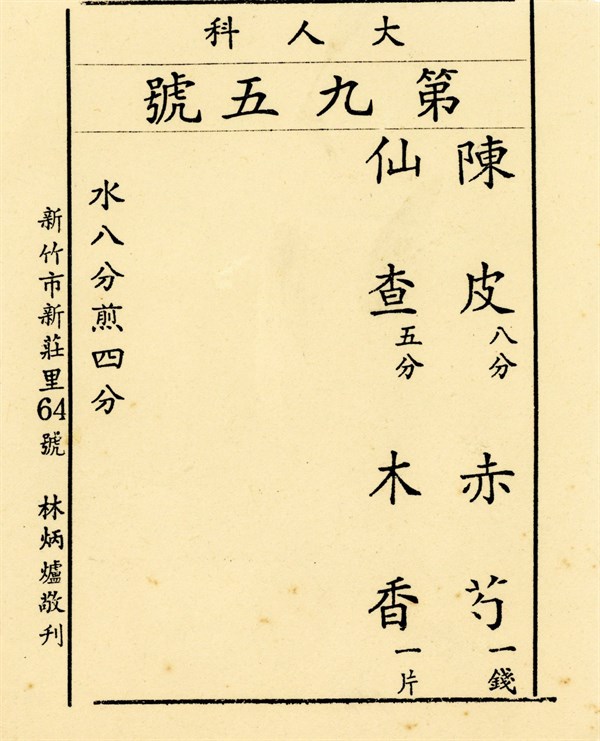 大人科
第九五號
陳皮八分 赤芍一錢
仙查五分 木香一片
水八分煎四分
新竹市新莊里64號 林炳爐敬刊